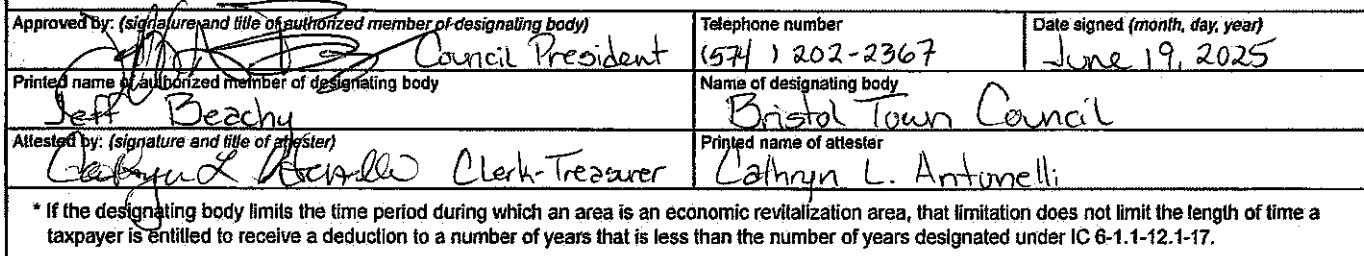 Approved by: (signature and title of authorized member of designating body) Telephone number Date signed (month, day, year)
Council President (574) 202-2367 June 19, 2025
Printed name of authorized member of designating body Name of designating body
Jeff Beachy Bristol Town Council
Attested by: (signature and title of attester) Printed name of attester
Cathryn L Antonelli Clerk-Treasurer Cathryn L. Antonelli
* If the designating body limits the time period during which an area is an economic revitalization area, that limitation does not limit the length of time a
taxpayer is entitled to receive a deduction to a number of years that is less than the number of years designated under IC 6-1.1-12.1-17.